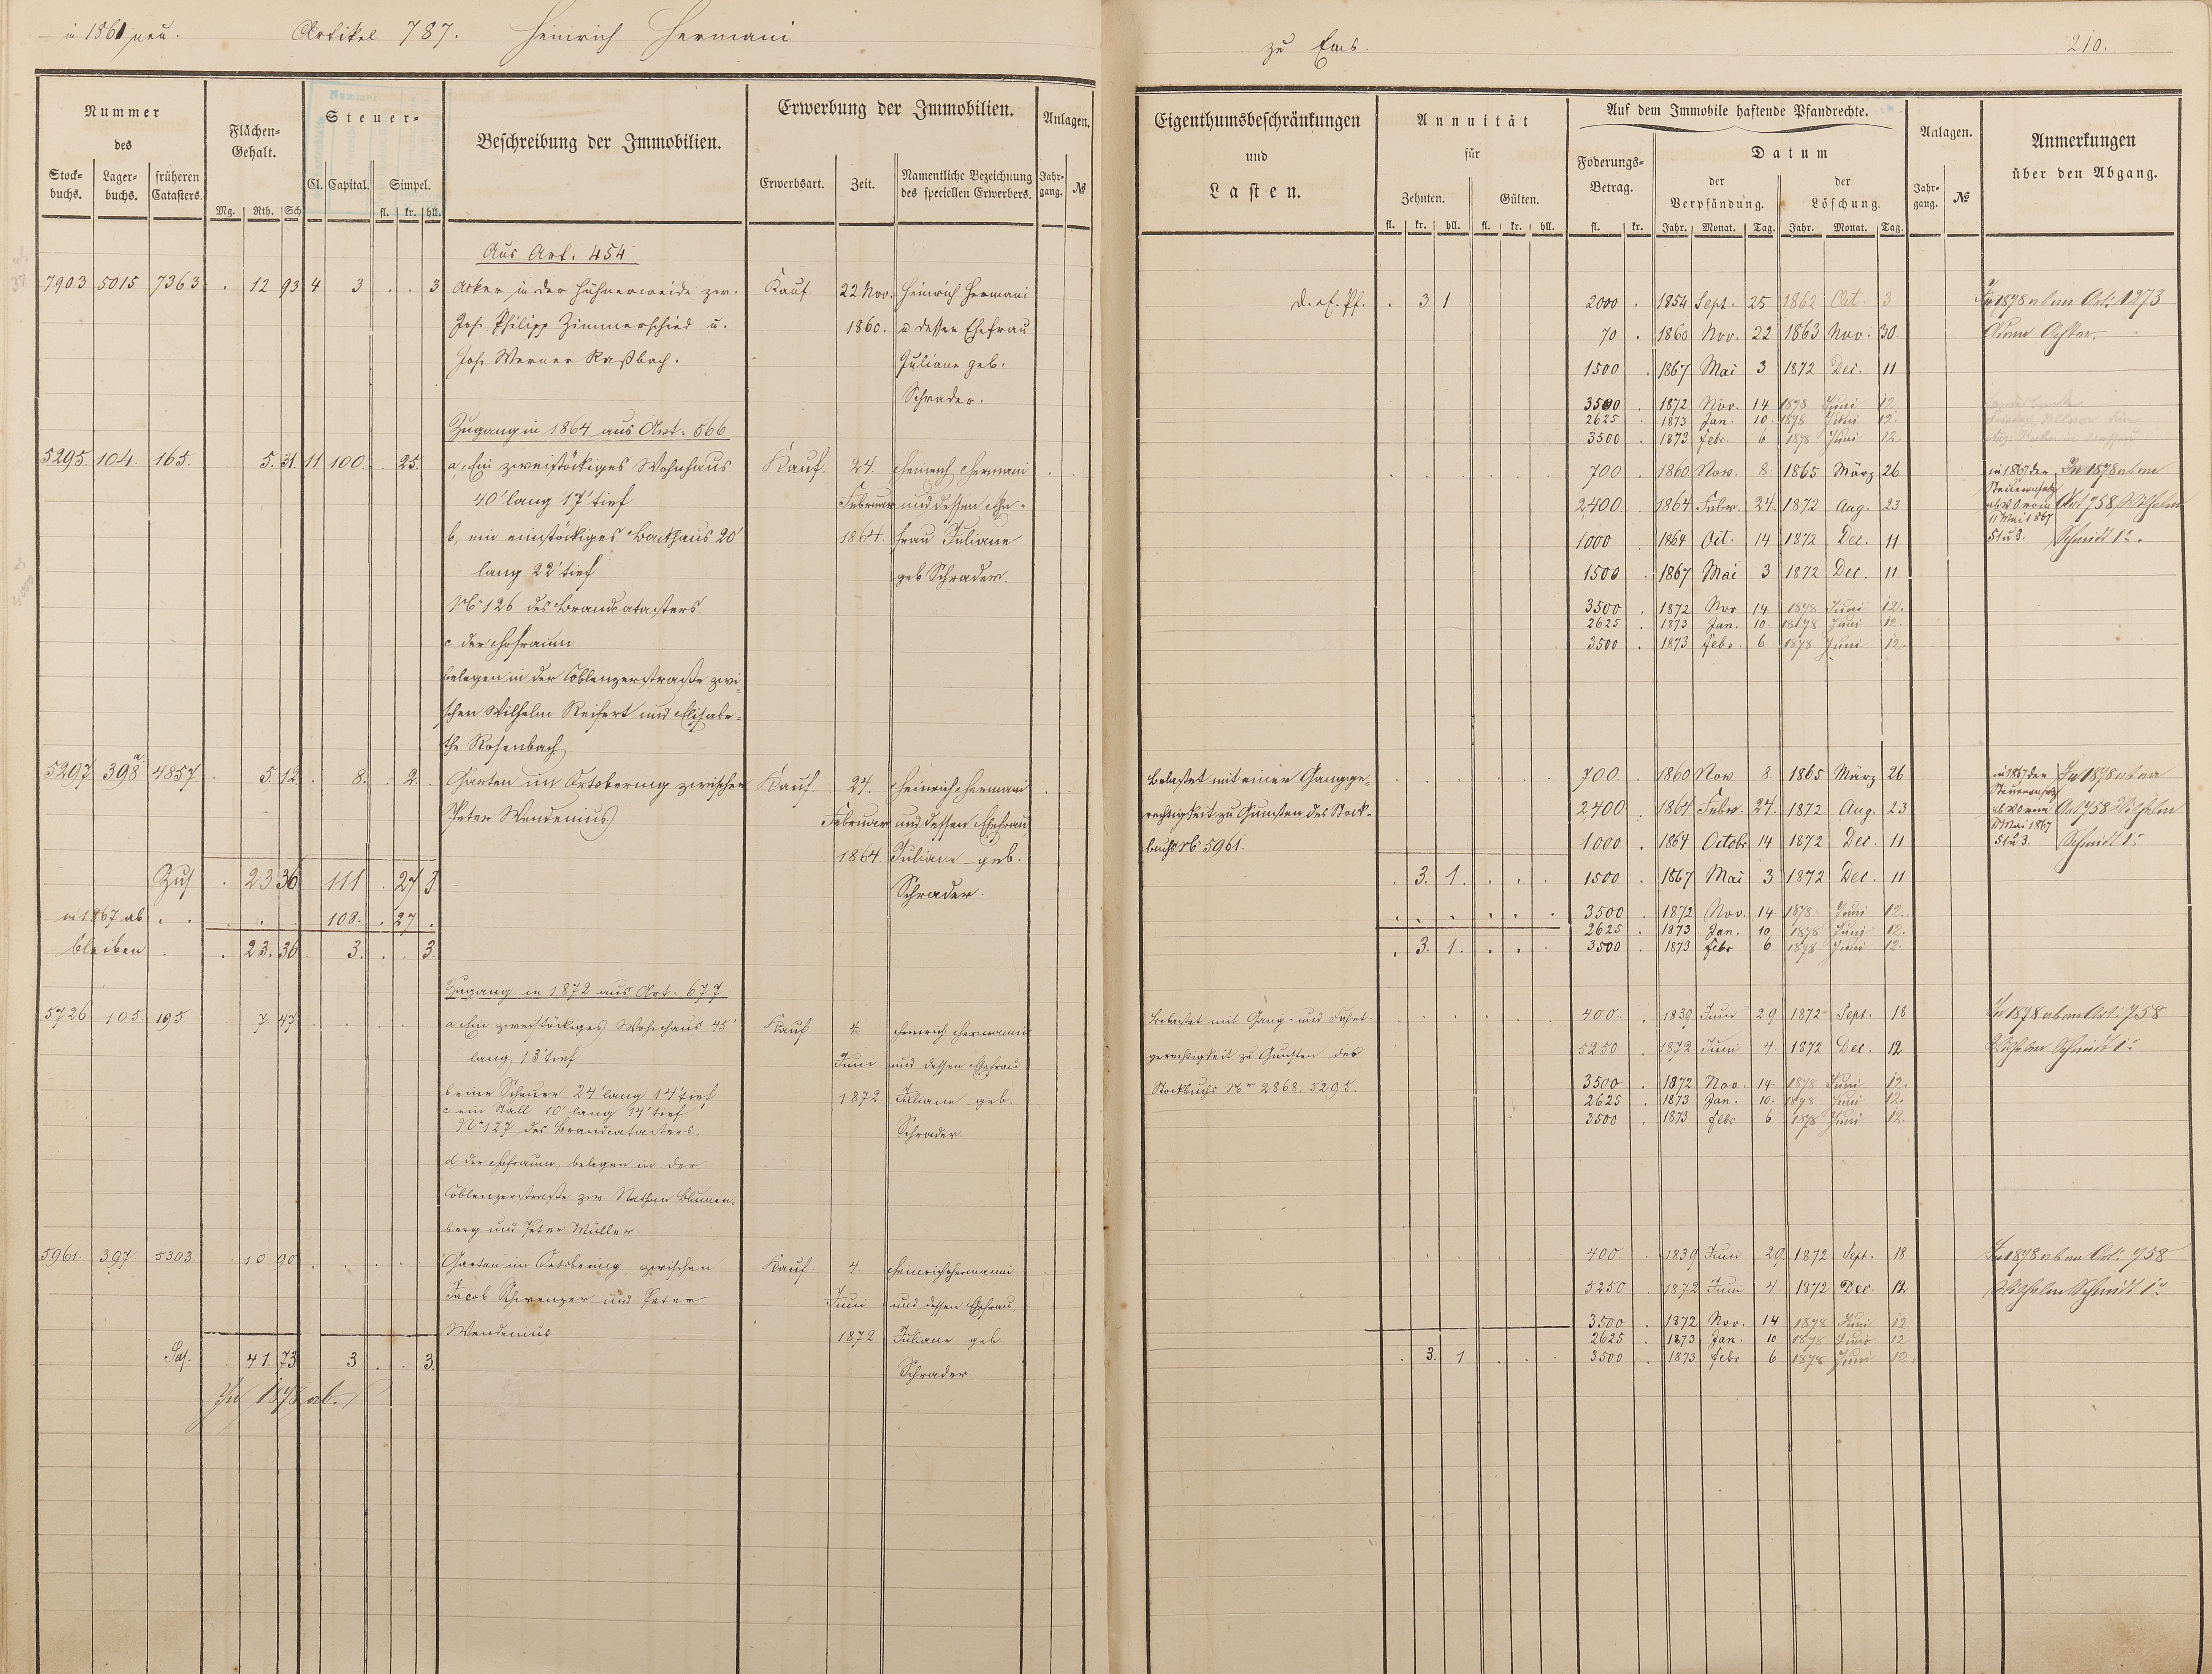 in 1861 neu. Artikel 787. Heinrich Hermani
zu Ems. 210.
Nummer des
Stockbuchs. Lagerbuchs. früheren Catasters.
Flächen-Gehalt.
Mg. Rth. Sch
Steuer-
Cl. Capital. Simpel.
fl. kr. hll.
Beschreibung der Immobilien.
Erwerbung der Immobilien.
Erwerbsart. Zeit. Namentliche Bezeichnung des speciellen Erwerbers.
Anlagen.
Jahrgang. №
Eigenthumsbeschränkungen
und
Lasten.
Annuität
für
Zehnten. Gülten.
fl. kr. hll. fl. kr. hll.
Auf dem Immobile haftende Pfandrechte.
Foderungs-Betrag.
fl. kr.
Datum
der Verpfändung. der Löschung.
Jahr. Monat. Tag. Jahr. Monat. Tag.
Anlagen.
Jahrgang. №
Anmerkungen
über den Abgang.
Aus Art. 454
7903 5015 7363 . 12 93 4 3 . . 3 Acker in der Hühnerweide zw. Kauf 22 Nov. Heinrich Hermani
Joh. Philipp Zimmerschied u. 1860. u. dessen Ehefrau
Joh. Werner Kaßbach. Juliane geb.
Schrader.
D. . Pf. . 3 1 2000 . 1854 Sept. 25 1862 Oct. 3 In 1878 ab an Art. 1273
70 . 1860 Nov. 22 1863 Nov. 30
1500 . 1867 Mai 3 1872 Dec. 11
3500 . 1872 Nov. 14 1878 Juni 12
2625 . 1873 Jan. 10 1878 Juni 12.
3500 . 1873 Febr. 6 1878 Juni 12.
Zugang in 1864 aus Art. 566
5295 104. 165. 5. 31. 11 100. . 25. a, Ein zweistöckiges Wohnhaus Kauf. 24. Heinrich Hermani
40' lang 17' tief Februar und dessen Ehe-
b, ein einstöckiges Backhaus 20' 1864. frau Juliane
lang 22' tief geb. Schrader.
No 126 des Brandcatasters
c der Hofraum
belegen in der Coblenzerstraße zwi-
schen Wilhelm Reifert und Elisabe-
the Rosenbach
700 . 1860 Nov. 8 1865 März 26 in 1867 der In 1878 ab an
2400 . 1864 Febr. 24. 1872 Aug. 23 Art 758 Wilhelm
1000 . 1864 Oct. 14 1872 Dec. 11 11 Mai 1867 Schmidt 1r.
1500 . 1867 Mai 3 1872 Dec. 11
3500 . 1872 Nov 14 1878 Juni 12.
2625 . 1873 Jan. 10. 1878 Juni 12.
3500 . 1873 Febr. 6 1878 Juni 12.
5297 398 a. 4857 . 5. 12. . 8. . 2. . Garten im Ortsbering zwischen Kauf. 24. Heinrich Hermani
Peter Wendenius Februar und dessen Ehefrau
1864. Juliane geb.
Schrader.
Belastet mit einer Gangge-
rechtigkeit zu Gunsten des Stock-
buchs No 5961.
700. 1860 Nov. 8. 1865 März 26 in 1867 der In 1878 ab an
2400. 1864 Febr. 24. 1872 Aug. 23 Art 758 Wilhelm
1000 . 1864 Octobr 14 1872 Dec. 11 Mai 1867 Schmidt 1r
Zus . 23 36 111 . 27 3. . 3. 1. . . . 1500 . 1867 Mai 3 1872 Dec. 11
in 1867 ab . . . . . 108. . 27 . 3500 . 1872 Nov. 14 1878 Juni 12.
2625 . 1873 Jan. 10 1878 Juni 12.
bleiben . . 23. 36. 3. . . 3. . 3. 1. . . . 3500 . 1873 Febr 6 1878 Juni 12.
Zugang in 1872 aus Art. 677
5726 105 195 7 47 a Ein zweistöckiges Wohnhaus 45' Kauf 4. Heinrich Hermanni
lang, 13' tief Juni und dessen Ehefrau
b eine Scheuer 24' lang 14' tief 1872 Juliane geb.
c ein Stall 10' lang 14' tief
No 127 des Brandcatasters Schrader.
d der Hofraum, belegen in der
Coblenzerstraße zw. Nathan Blumen-
berg und Peter Müller.
Belastet mit Gang- und Fahrt-
gerechtigkeit zu Gunsten des
Stockbuchs Nr 2868. 5295.
400. 1839 Juni 29 1872 Sept. 18 In 1878 ab an Art. 758
5250 . 1872 Juni 4. 1872 Dec. 12 Wilhelm Schmidt 1r
3500 . 1872 Nov. 14. 1878 Juni 12.
2625 . 1873 Jan. 10. 1878 Juni 12.
3500 . 1873 Febr 6 1878 Juni 12.
5961 397 5303 10 90 Garten im Ortsbering, zwischen Kauf. 4 Heinrich Hermanni
Jacob Schwenzer und Peter Juni und dessen Ehefrau,
Wendenius 1872 Juliane geb.
Schrader
400. 1839 Juni 29 1872 Sept. 18 In 1878 ab an Art. 758
5250 1872 Juni 4. 1872 Dec. 12 Wilhelm Schmidt 1r
3500 . 1872 Nov. 14 1878 Juni 12
2625 . 1873 Jan. 10 1878 Juni 12
Sa. . 41. 73. 3 . . 3. . 3. 1 . . . 3500 . 1873 Febr 6 1878 Juni 12.
In 1878 ab.